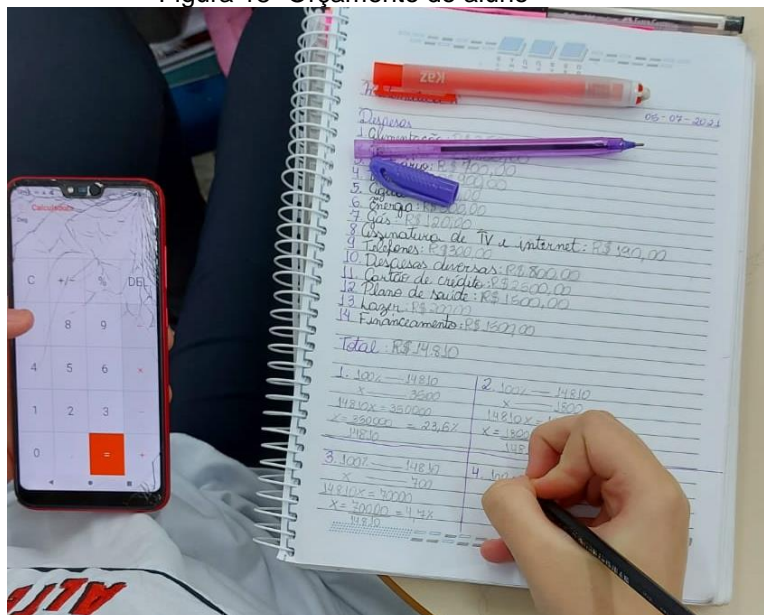 Figura 18- Orçamento do aluno
Kaz
05-07-2021
Despesas
1. Alimentação:
R$ 700,00
4.
5. Água
6. Energia: R$
7. Gás: R$ 120,00
8. Assinatura de TV e internet: R$ 190,00
9. Telefones: R$ 300,00
10. Despesas diversas: R$ 800,00
11. Cartão de crédito: R$ 2500,00
12. Plano de saúde: R$ 1500,00
13. Lazer: R$
14. Financeamento: R$ 1500,00
Total: R$ 14.810
1. 100% — 14810
x — 3500
14810x = 350000
x = 350000 = 23,6%
14810
2. 100% — 14810
x — 1800
14810x =
x = 1800
148
3. 100% — 14810
x — 700
14810x = 70000
x = 70000 = 4,7%
14810
4. 100
Calculadora
Deg
C +/- % DEL
8 9
4 5 6 ×
1 2 3 -
0 . = +